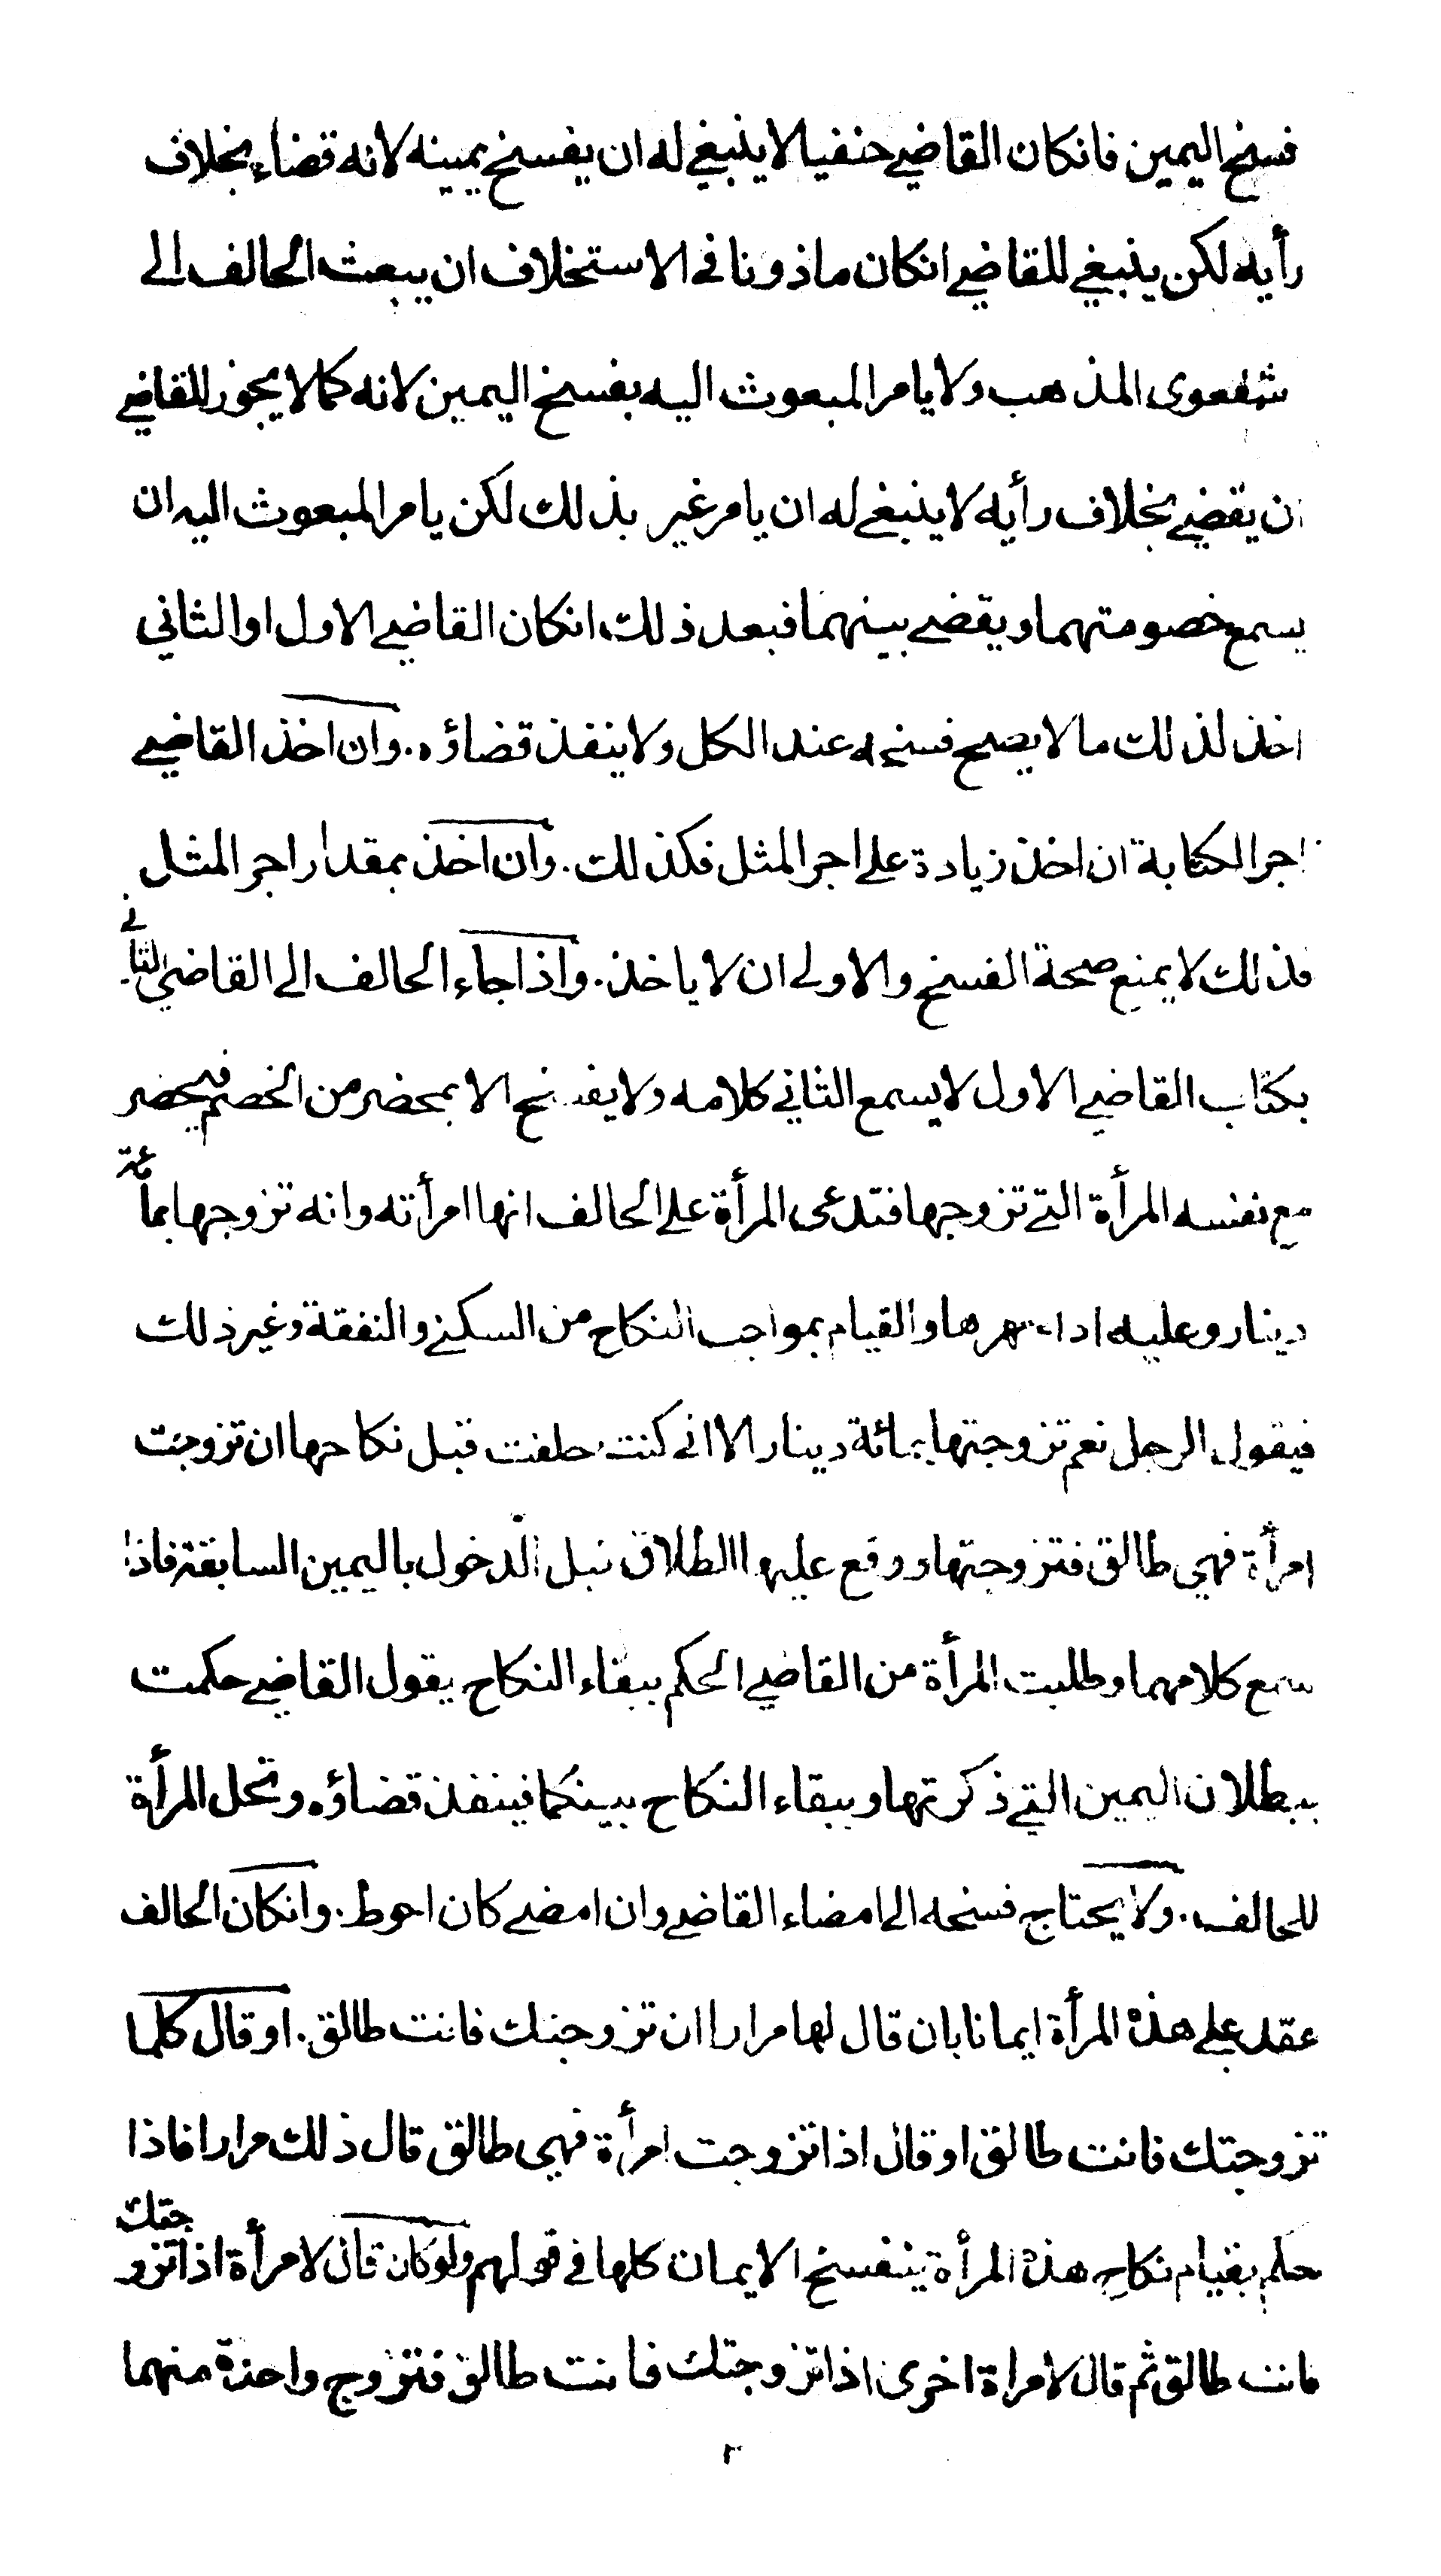 فسخ اليمين فانكان القاضي حنفيا لا ينبغي له ان يفسخ يمينه لانه قضاء بخلاف
رأيه لكن ينبغي للقاضي انكان ماذونا في الاستخلاف ان يبعث الحالف الى
شفعوى المذهب ولا يامر المبعوث اليه بفسخ اليمين لانه كما لا يجوز للقاضي
ان يقضي بخلاف رأيه لا ينبغي له ان يامر غير بذلك لكن يامر المبعوث اليه ان
يسمع خصومتهما ويقضي بينهما فبعد ذلك انكان القاضي الاول او الثاني
اخذ لذلك ما لا يصح فسخه عند الكل ولا ينفذ قضاؤه. وان اخذ القاضي
اجر الكتابة ان اخذ زيادة على اجر المثل فكذلك. وان اخذ بمقدار اجر المثل
فذلك لا يمنع صحة الفسخ والاولى ان لا ياخذ. واذا جاء الحالف الى القاضي الثاني
بكتاب القاضي الاول لا يسمع الثاني كلامه ولا يفسخ الا بمحضر من الخصم فيحضر
مع نفسه المرأة التي تزوجها فتدعى المرأة على الحالف انها امرأته وانه تزوجها بمائة
دينار وعليه اداء مهرها والقيام بمواجب النكاح من السكنى والنفقة وغير ذلك
فيقول الرجل نعم تزوجتها بمائة دينار الا اني كنت حلفت قبل نكاحها ان تزوجت
امرأة فهي طالق فتزوجتها ووقع عليها الطلاق قبل الدخول باليمين السابقة فاذا
سمع كلامهما وطلبت المرأة من القاضي الحكم ببقاء النكاح يقول القاضي حكمت
ببطلان اليمين التي ذكرتها وببقاء النكاح بينكما فينفذ قضاؤه وتحل المرأة
للحالف. ولا يحتاج فسخه الى امضاء القاضي وان امضى كان احوط. وانكان الحالف
عقد على هذه المرأة ايمانا بان قال لها مرارا ان تزوجتك فانت طالق. او قال كلما
تزوجتك فانت طالق او قال اذا تزوجت امرأة فهي طالق قال ذلك مرارا فاذا
حكم بقيام نكاح هذه المرأة ينفسخ الايمان كلها في قولهم ولو كان قال لامرأة اذا تزوجتك
فانت طالق ثم قال لامراة اخرى اذا تزوجتك فانت طالق فتزوج واحدة منهما